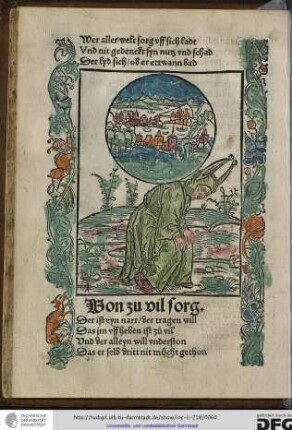 Wer aller welt sorg vff sich ladt
Vnd nit gedenckt syn nutz vnd schad
Der lyd sich / ob er ettwann bad
Von zu vil sorg.
Der ist eyn narr / der tragen will
Das im vffheben ist zů vil
Vnd der alleyn will vnderston
Das er selb dritt nit möcht gethon
http://tudigit.ulb.tu-darmstadt.de/show/inc-ii-218/0060
Universitäts- und Landesbibliothek Darmstadt
TECHNISCHE
UNIVERSITÄT
DARMSTADT
gefördert durch die
DFG